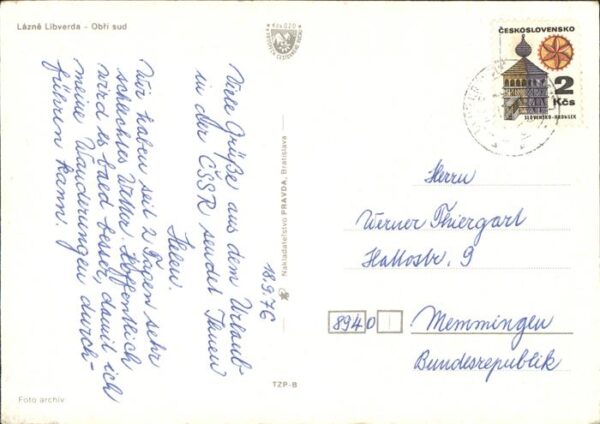 Lázně Libverda - Obří sud
ČESKOSLOVENSKO
2
Kčs
SLOVENSKO-HRONSEK
18.9.76
Viele Grüße aus dem Urlaub
in der ČSSR sendet Ihnen
Wir haben seit 2 Tagen sehr
schlechtes Wetter. Hoffentlich
wird es bald besser, damit ich
meine Wanderungen durch-
führen kann.
Nakladateľstvo PRAVDA, Bratislava
TZP-B
Foto archív
Herrn
Werner Thiergart
9
8940 Memmingen
Bundesrepublik